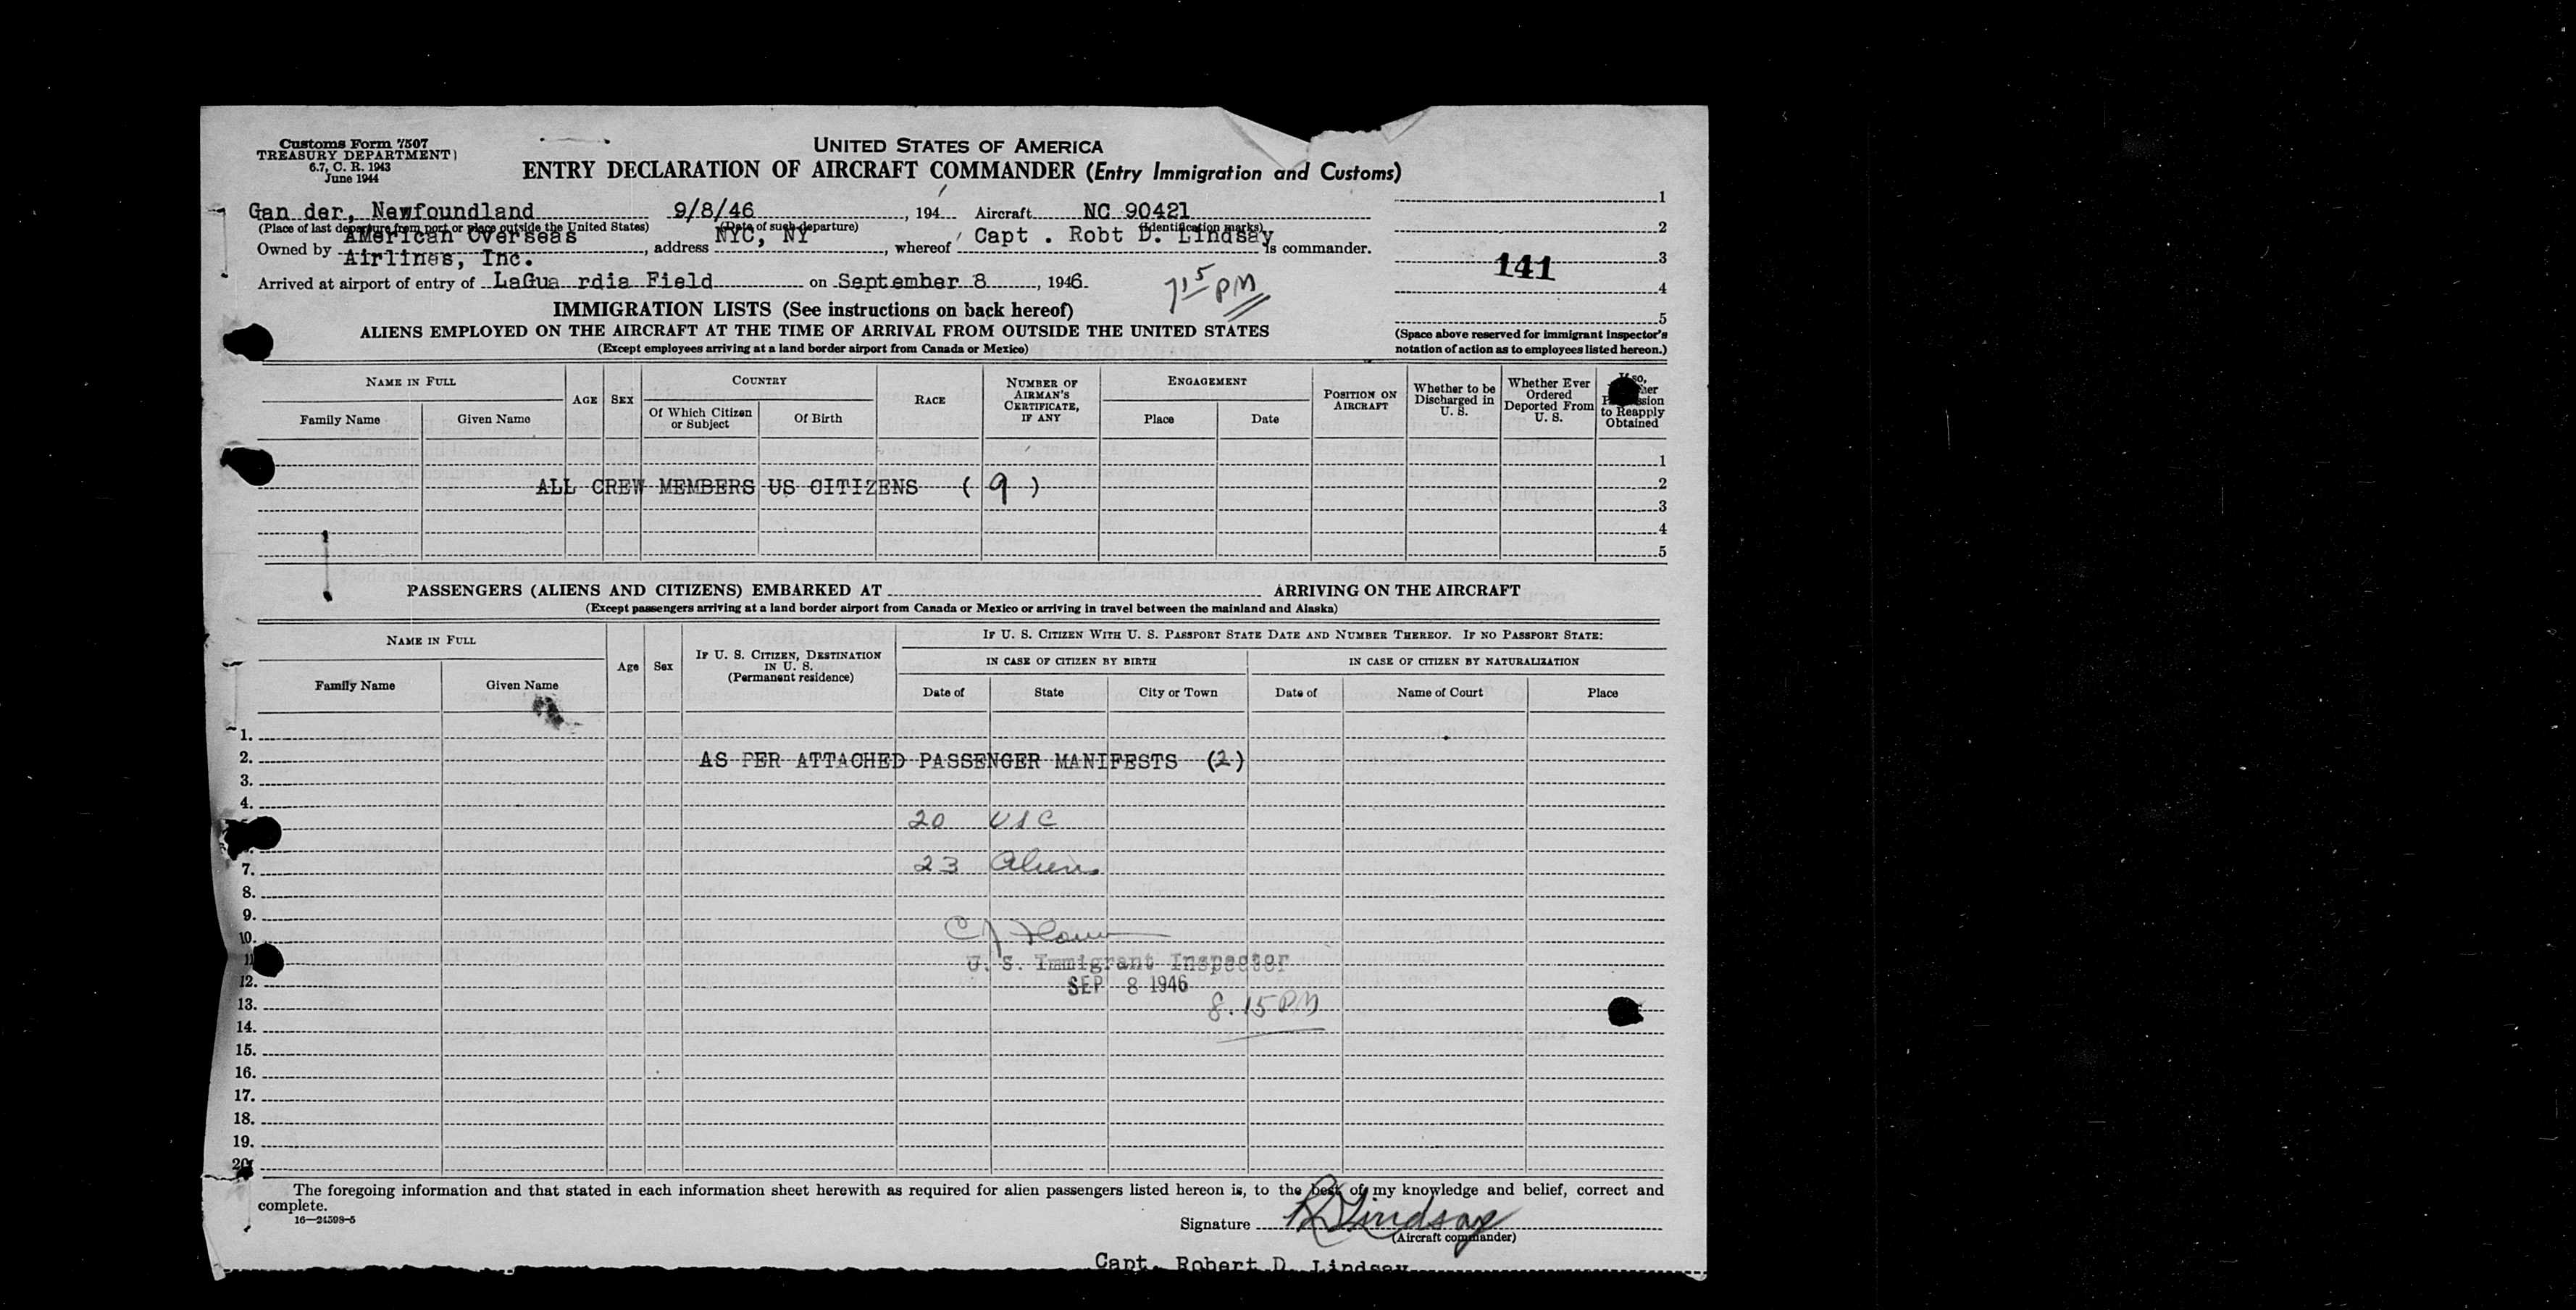 Customs Form 7507
TREASURY DEPARTMENT
6.7, C. R. 1943
June 1944
UNITED STATES OF AMERICA
ENTRY DECLARATION OF AIRCRAFT COMMANDER (Entry Immigration and Customs)
Gan der, Newfoundland 9/8/46 , 194 Aircraft NC 90421
(Place of last departure from port or place outside the United States) (Date of such departure) (Identification marks)
Owned by American Overseas Airlines, Inc. , address NYC, NY , whereof Capt . Robt D. Lindsay is commander.
Arrived at airport of entry of LaGua rdia Field on September 8 , 1946.
7 15 PM
1
2
3
141
4
5
(Space above reserved for immigrant inspector's
notation of action as to employees listed hereon.)
IMMIGRATION LISTS (See instructions on back hereof)
ALIENS EMPLOYED ON THE AIRCRAFT AT THE TIME OF ARRIVAL FROM OUTSIDE THE UNITED STATES
(Except employees arriving at a land border airport from Canada or Mexico)
NAME IN FULL
Family Name Given Name
AGE SEX
COUNTRY
Of Which Citizen or Subject Of Birth
RACE
NUMBER OF AIRMAN'S CERTIFICATE, IF ANY
ENGAGEMENT
Place Date
POSITION ON AIRCRAFT
Whether to be Discharged in U. S.
Whether Ever Ordered Deported From U. S.
to Reapply Obtained
1
ALL CREW MEMBERS US CITIZENS ( 9 ) 2
3
4
5
PASSENGERS (ALIENS AND CITIZENS) EMBARKED AT ARRIVING ON THE AIRCRAFT
(Except passengers arriving at a land border airport from Canada or Mexico or arriving in travel between the mainland and Alaska)
NAME IN FULL
Family Name Given Name
Age Sex
IF U. S. CITIZEN, DESTINATION IN U. S.
(Permanent residence)
IF U. S. CITIZEN WITH U. S. PASSPORT STATE DATE AND NUMBER THEREOF. IF NO PASSPORT STATE:
IN CASE OF CITIZEN BY BIRTH IN CASE OF CITIZEN BY NATURALIZATION
Date of State City or Town Date of Name of Court Place
1.
2. AS PER ATTACHED PASSENGER MANIFESTS (2)
3.
4.
20 USC
7. 23 Aliens
8.
9.
10.
11 U. S. Immigrant Inspector
12. SEP 8 1946
13. 8.15 PM
14.
15.
16.
17.
18.
19.
20.
The foregoing information and that stated in each information sheet herewith as required for alien passengers listed hereon is, to the best of my knowledge and belief, correct and
complete.
16—24598-5
Signature RD Lindsay
(Aircraft commander)
Capt. Robert D. Lindsay